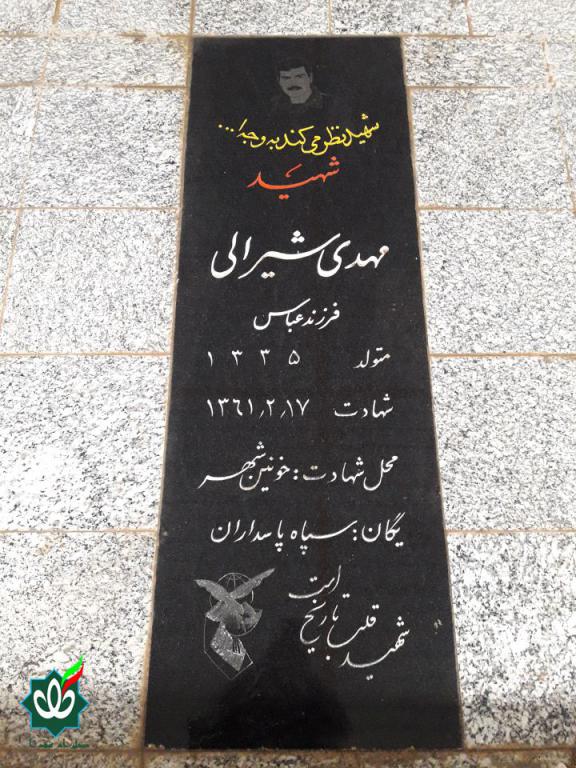 شهید نظر می کند به وجه ا...
شهید
مهدی شیرالی
فرزند عباس
متولد ۱۳۳۵
شهادت ۱۳۶۱٫۲٫۱۷
محل شهادت : خونین شهر
یگان : سپاه پاسداران
شهید قلب تاریخ است